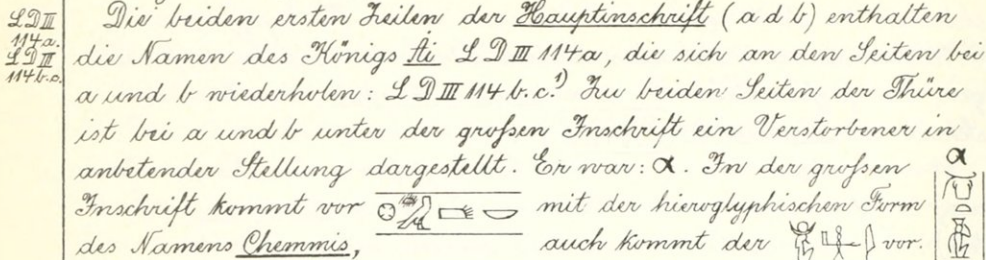 LDIII
114a.
LDIII
114b.c.
Die beiden ersten Zeilen der Hauptinschrift (a d b) enthalten
die Namen des Königs Ai LDIII 114a, die sich an den Seiten bei
a und b wiederholen: LDIII 114 b.c.¹) Zu beiden Seiten der Thüre
ist bei a und b unter der großen Inschrift ein Verstorbener in
anbetender Stellung dargestellt. Er war: α. In der großen
Inschrift kommt vor mit der hieroglyphischen Form
des Namens Chemmis, auch kommt der vor.
α